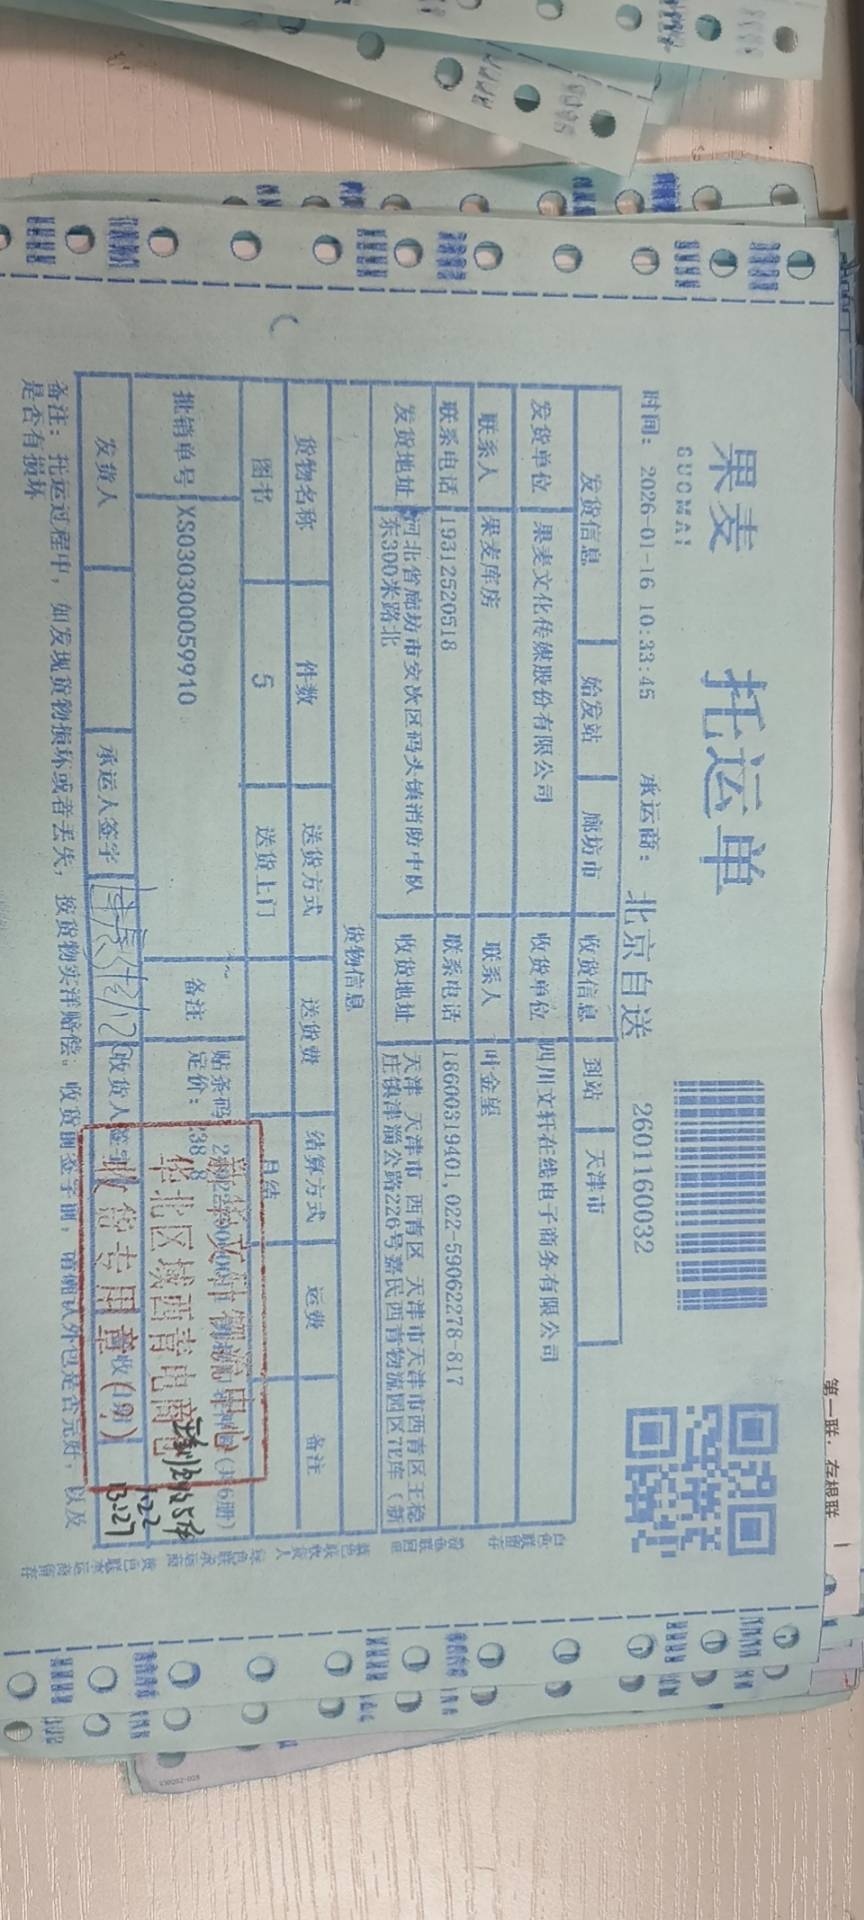 果麦 托运单
GUOMAI
时间: 2026-01-16 10:33:45 承运商: 北京自送 2601160032
发货信息 始发站 廊坊市 收货信息 到站 天津市
发货单位 果麦文化传媒股份有限公司 收货单位 四川文轩在线电子商务有限公司
联系人 果麦库房 联系人 叶金玺
联系电话 19312520518 联系电话 18600319401,022-59062278-817
发货地址 河北省廊坊市安次区码头镇消防中队 收货地址 天津 天津市 西青区 天津市天津市西青区王稳
东300米路北 庄镇津淄公路226号嘉民西青物流园区7E库(新
货物信息
货物名称 件数 送货方式 送货费 结算方式 运费 备注
图书 5 送货上门 月结
批销单号 XS030300059910 备注 贴条码
定价: (共6册)
发货人 承运人签字 收货人签字
备注: 托运过程中, 如发现货物损坏或者丢失, 按货物实洋赔偿。收货前签字前, 请确认外包是否完好, 以及
是否有损坏
新华文轩物流中心
华北区域西青电商
收货专用章(9)
1.22
13:27
第一联: 存根联